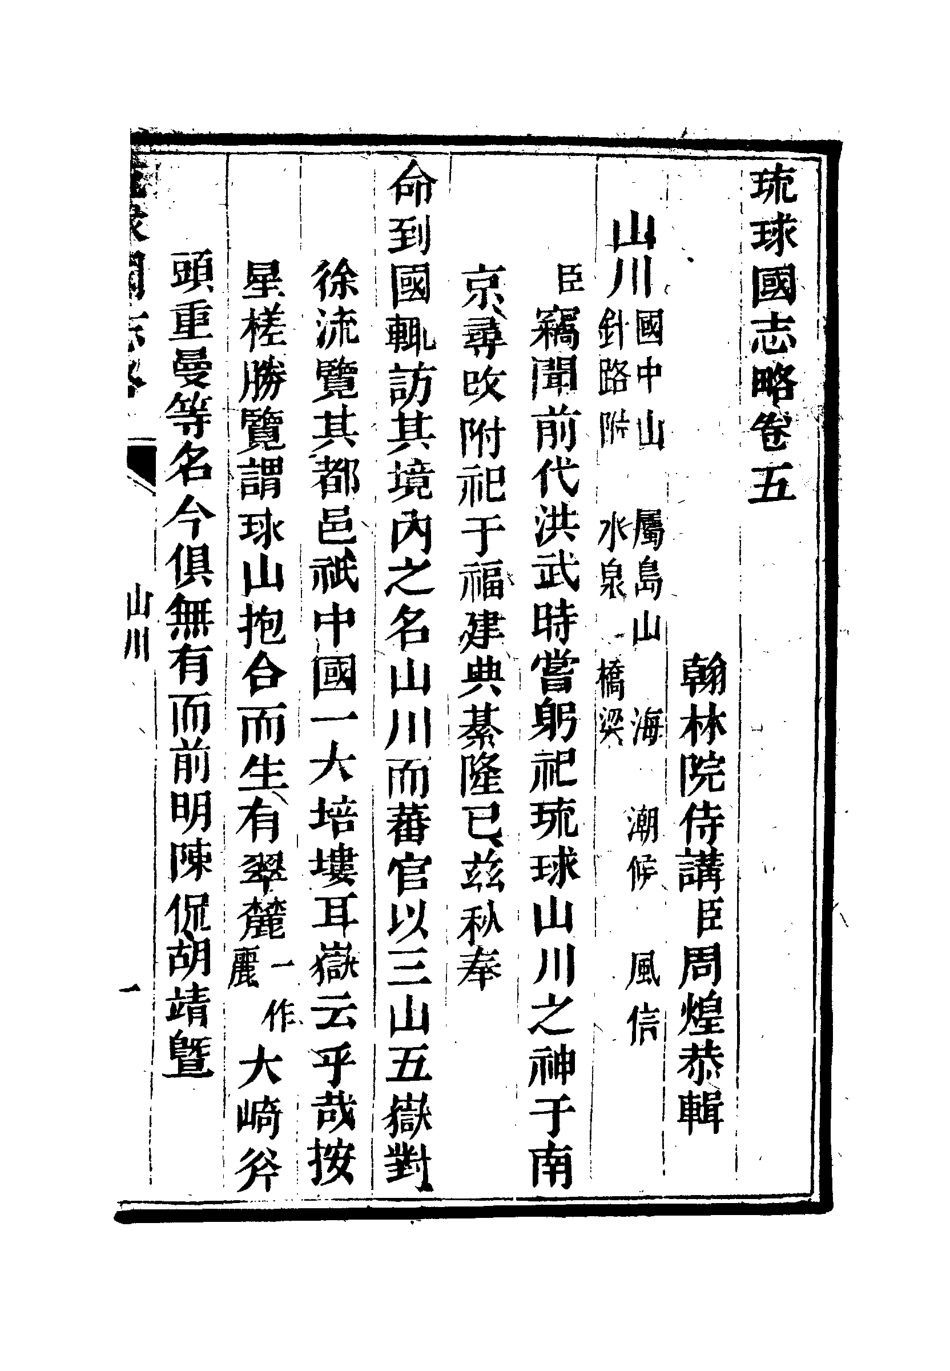 琉球國志略卷五
翰林院侍講臣周煌恭輯
山川 國中山 屬島山 海 潮候 風信 針路附 水泉 橋梁
臣竊聞前代洪武時嘗躬祀琉球山川之神于南
京尋改附祀于福建典綦隆已茲秋奉
命到國輒訪其境內之名山川而蕃官以三山五嶽對
徐流覽其都邑祇中國一大培塿耳嶽云乎哉按
星槎勝覽謂球山抱合而生有翠麓一作麗大崎斧
頭重曼等名今俱無有而前明陳侃胡靖曁
琉球國志略
山川
一